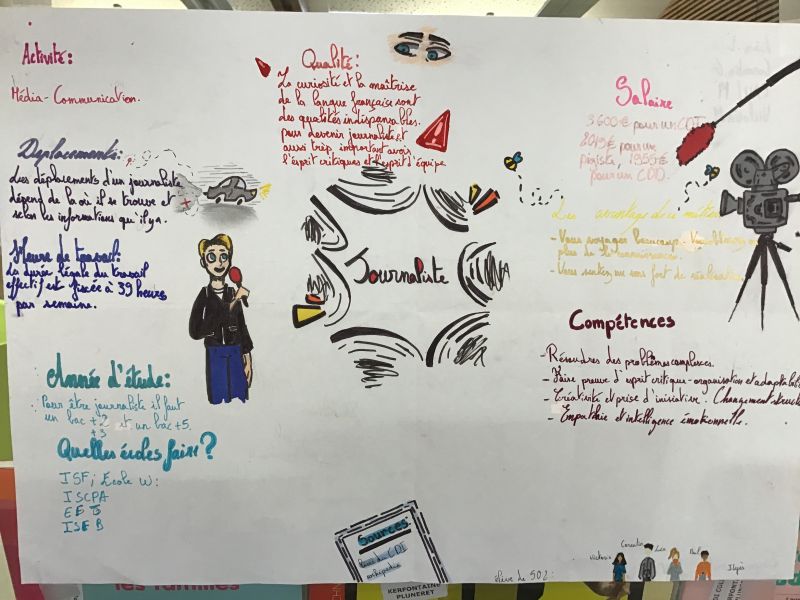 Activité:
Média-Communication.
Déplacements:
Les déplacements d'un journaliste
dépend de la où il se trouve et
selon les informations qu'il y a.
Heure de travail:
La durée légale du travail
effectif est fixée à 39 heures
par semaine.
Année d'étude:
Pour être journaliste il faut
un bac +2 et un bac +5.
+3
Quelles écoles faire?
ISF; École W:
ISCPA
EFJ
ISEB
Qualité:
La curiosité et la maîtrise
de la langue française sont
des qualités indispensables.
pour devenir journaliste,
aussi très important avoir
l'esprit critiques et l'esprit d'équipe
Journaliste
Salaire
3600€ pour un CDI
pour un
pigiste, 1955€
pour un CDD.
Les avantage de ce métier
- Vous voyagez beaucoup. Vous
plus de connaissances.
- Vous sentez un sens fort de réalisation
Compétences
- Résoudres des problèmes complexes.
- Faire preuve d'esprit critique-organisation et adaptabilité
- Créativité et prise d'iniciative. Changement structure
- Empathie et intelligence émotionnelle.
Sources:
CDI
KERFONTAINE
PLUNERET
élève de 502:
Corentin
Léa
Ilyès
les familles